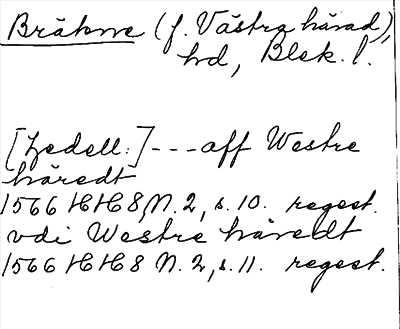 Bräkne (f. Västra härad),
hd, Blek. l.
[Lydell:] --- aff Westre
häredt
1566 HH8, N. 2, s. 10. regest.
vdi Westre häredt
1566 HH8 N. 2, s. 11. regest.